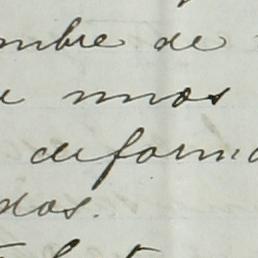 mbre de
unos
de forma
dos.